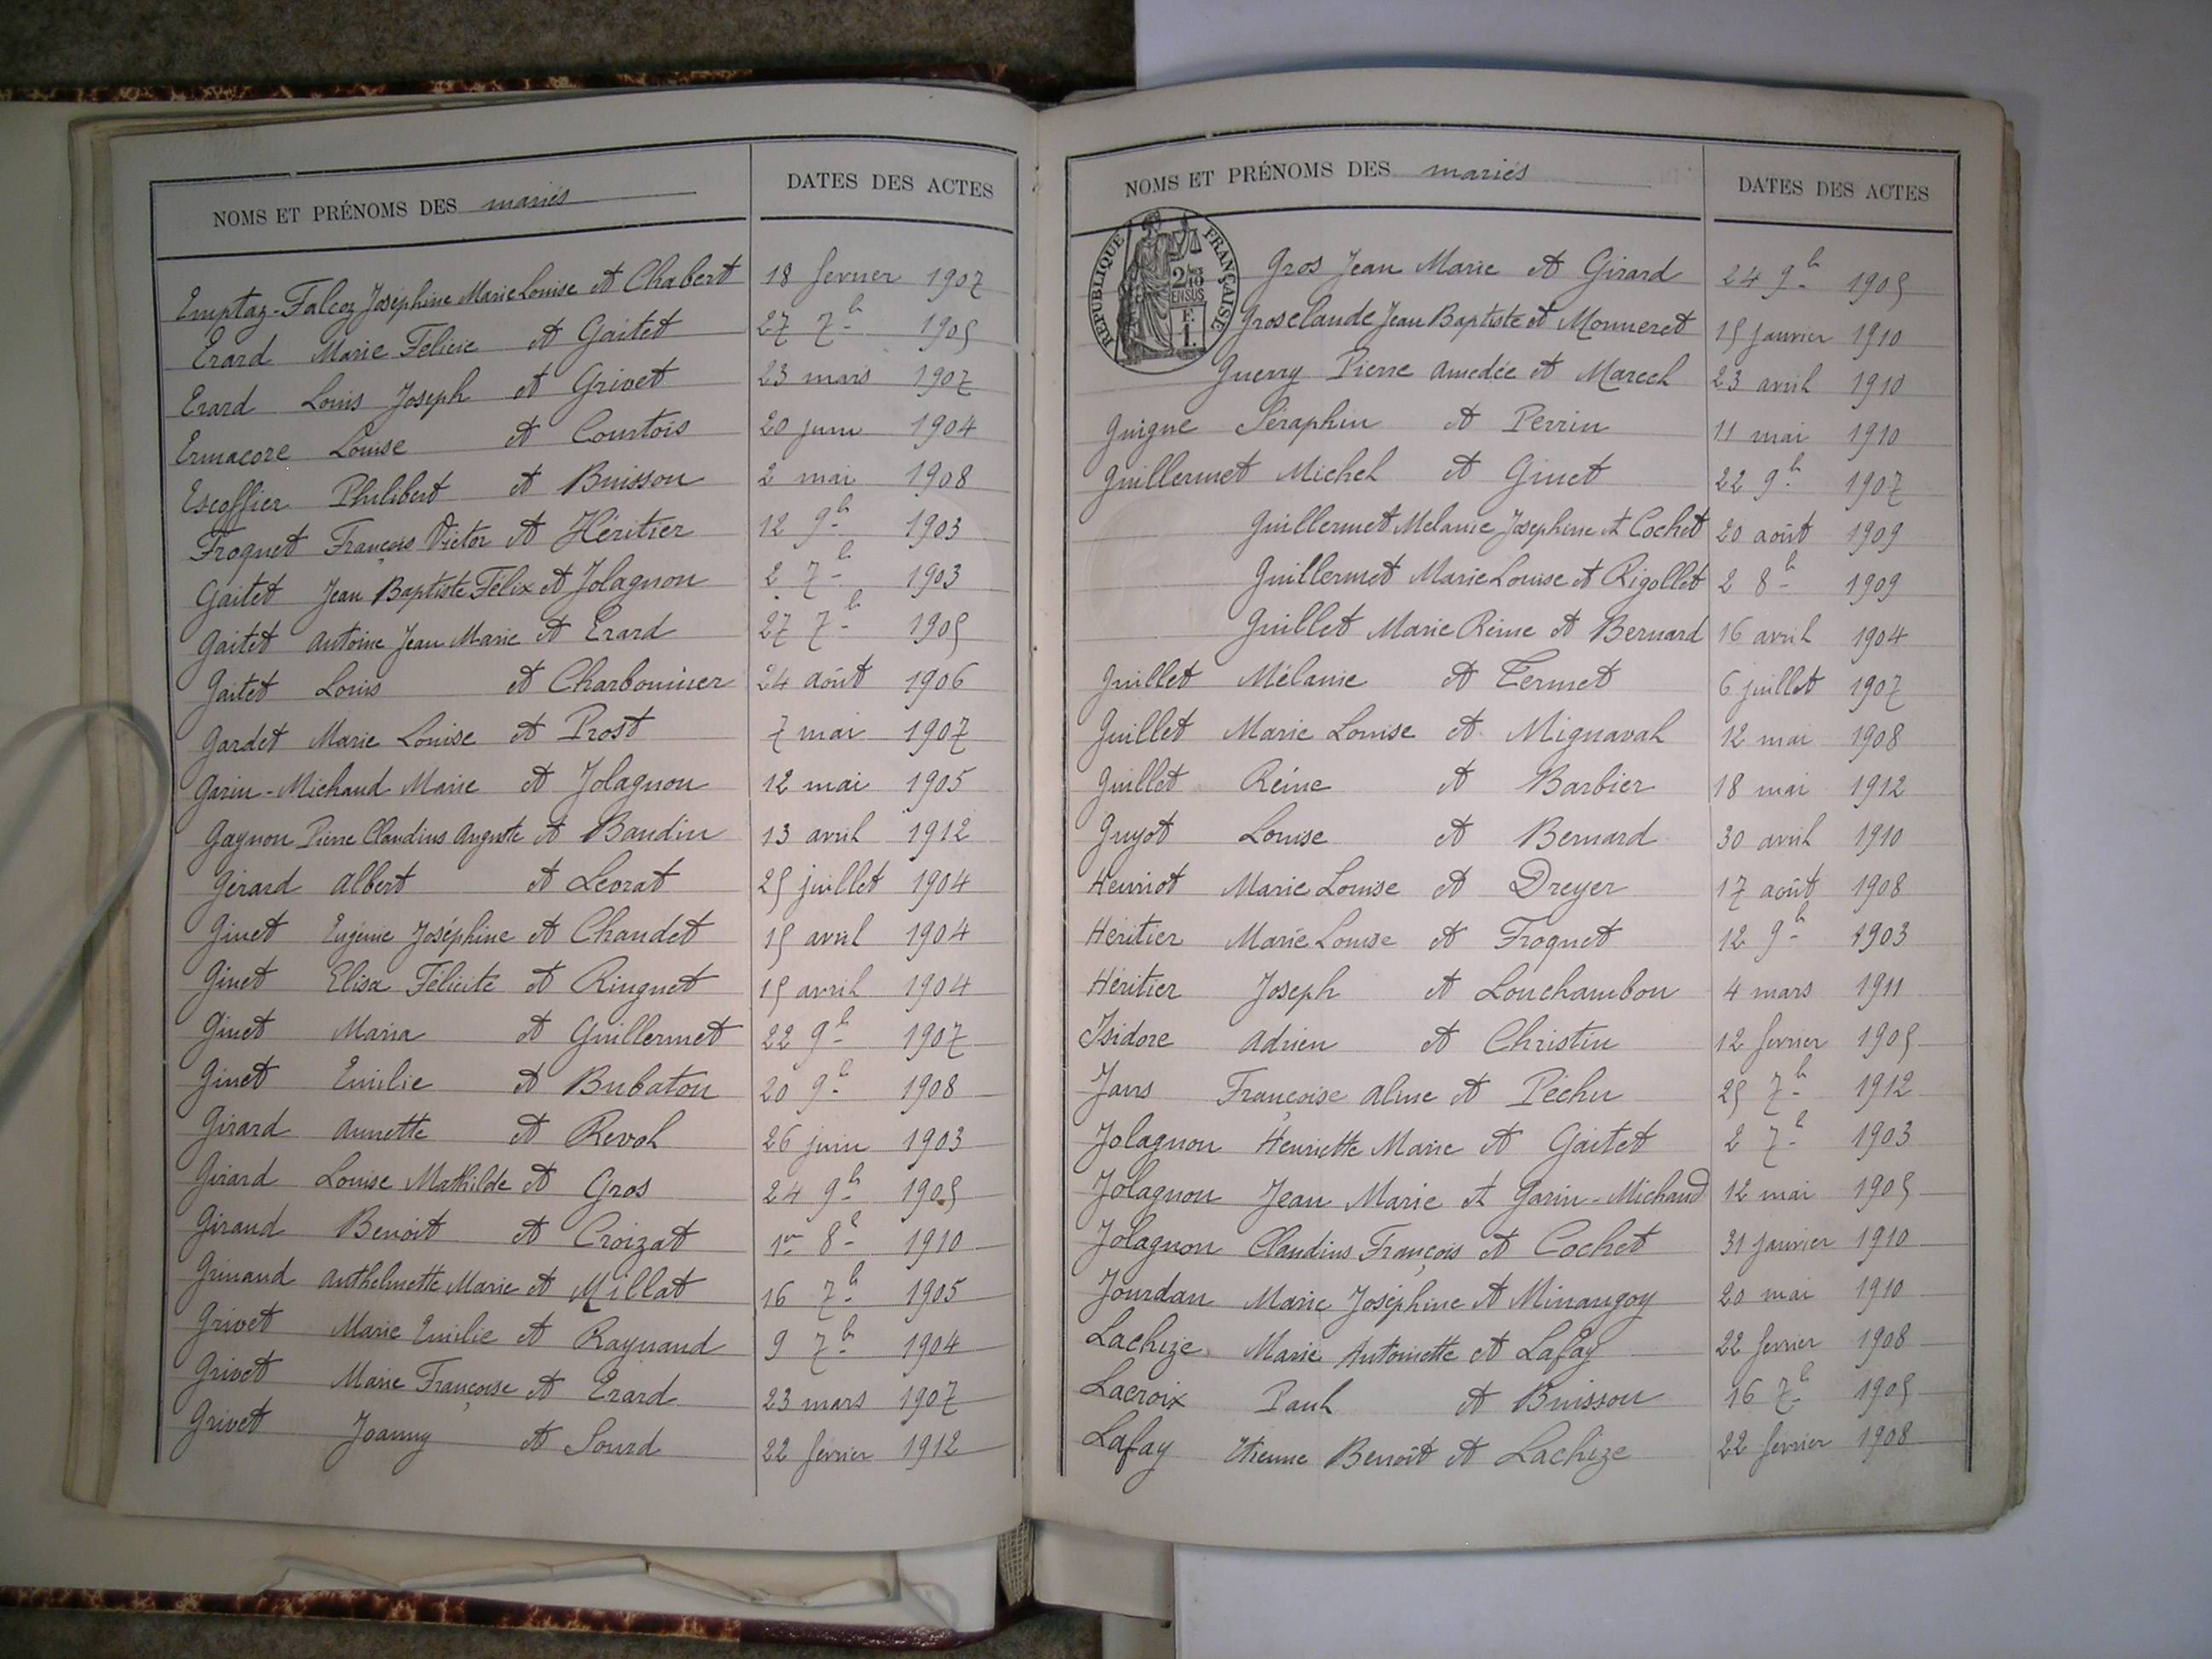 NOMS ET PRÉNOMS DES mariés DATES DES ACTES
Emptaz-Falcoz Joséphine Marie Louise et Chabert 18 fevrier 1907
Erard Marie Felicie et Gaitet 27 7b 1905
Erard Louis Joseph et Grivet 23 mars 1907
Ermacore Louise et Courtois 20 juin 1904
Escoffier Philibert et Buisson 2 mai 1908
Froquet François Victor et Héritier 12 9b 1903
Gaitet Jean Baptiste Félix et Jolagnon 2 7b 1903
Gaitet Antoine Jean Marie et Erard 27 7b 1905
Gaitet Louis et Charbonnier 24 août 1906
Gardet Marie Louise et Prost 7 mai 1907
Garin-Michaud Marie et Jolagnon 12 mai 1905
Gagnon Pierre Claudius Auguste et Baudin 13 avril 1912
Gérard Albert et Levrat 25 juillet 1904
Ginet Eugénie Joséphine et Chaudet 15 avril 1904
Ginet Elisa Félicité et Ringuet 15 avril 1904
Ginet Maria et Guillermet 22 9b 1907
Ginet Emilie et Bubaton 20 9b 1908
Girard Annette et Revol 26 juin 1903
Girard Louise Mathilde et Gros 24 9b 1905
Giraud Benoit et Croizat 1er 8b 1910
Grinand Anthelmette Marie et Millat 16 7b 1905
Grivet Marie Emilie et Raynaud 9 7b 1904
Grivet Marie Françoise et Erard 23 mars 1907
Grivet Joanny et Sourd 22 fevrier 1912
NOMS ET PRÉNOMS DES mariés DATES DES ACTES
RÉPUBLIQUE FRANÇAISE
2/10 EN SUS
F. 1.
Gros Jean Marie et Girard 24 9b 1905
Groselaude Jean Baptiste et Monneret 15 janvier 1910
Guerry Pierre Amedée et Marcel 23 avril 1910
Guigue Séraphin et Perrin 11 mai 1910
Guillermet Michel et Ginet 22 9b 1907
Guillermet Melanie Josephine et Cochet 20 août 1909
Guillermet Marie Louise et Rigollet 2 8b 1909
Guillet Marie Reine et Bernard 16 avril 1904
Guillet Mélanie et Termet 6 juillet 1907
Guillet Marie Louise et Mignaval 12 mai 1908
Guillet Reine et Barbier 18 mai 1912
Guyot Louise et Bernard 30 avril 1910
Henriot Marie Louise et Dreyer 17 août 1908
Héritier Marie Louise et Froquet 12 9b 1903
Héritier Joseph et Louchambon 4 mars 1911
Isidore Adrien et Christin 12 fevrier 1905
Jans Françoise Aline et Péchu 25 7b 1912
Jolagnon Henriette Marie et Gaitet 2 7b 1903
Jolagnon Jean Marie et Garin-Michaud 12 mai 1905
Jolagnon Claudius François et Cochet 31 janvier 1910
Jourdan Marie Joséphine et Minangoy 20 mai 1910
Lachize Marie Antoinette et Lafay 22 fevrier 1908
Lacroix Paul et Buisson 16 7b 1905
Lafay Etienne Benoît et Lachize 22 fevrier 1908